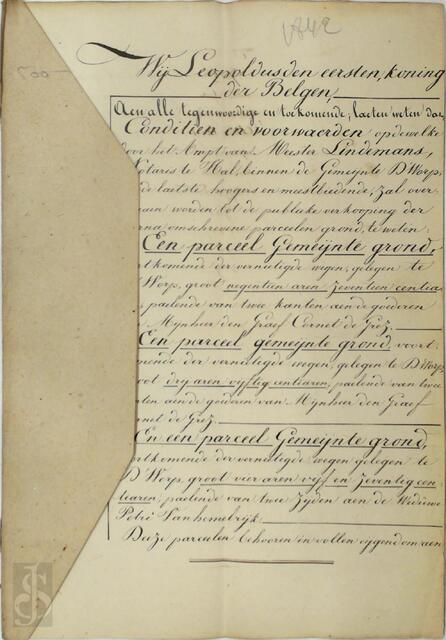 1842
500-
Wij Leopoldus den eersten, koning
der Belgen,
Aen alle tegenwoordige en toekomende, laeten weten dat
Conditien en voorwaerden op dewelke
door het Ampt van Meester Lindemans,
Notaris te Hal, binnen de Gemeynte D'Worp,
de laetste hoogers en meestbiedende, zal over
gaen worden tot de publieke verkooping der
erna omschreeve parceelen grond, te weten:
Een parceel Gemeynte grond,
rtkomende der vernietigde wegen, gelegen te
Worp, groot negentien aren zeventien centia
, paelende van twee kanten aen de goederen
Mynheer den Graef Cornet de Grez.
Een parceel gemeynte grond, voort-
mende der vernietigde wegen, gelegen te D'Worp,
oot dry aren vyftig centiaren, paelende van twee
ten aen de goederen van Mynheer den Graef
rnet de Grez.
En een parceel Gemeynte grond,
rtkomende der vernietigde wegen gelegen te
D'Worp, groot vier aren vyf en zeventig cen-
tiaren, paelende van twee zyden aen de Weduwe
Petri Vanhembrijk
Deeze parceelen behooren in vollen eygendom aen